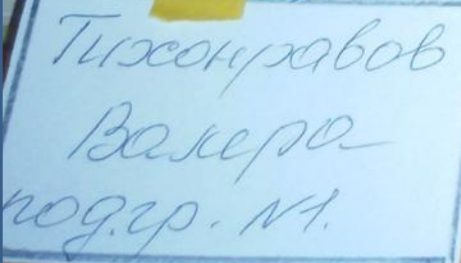 Тихонравов
Валера
подгр. №1.